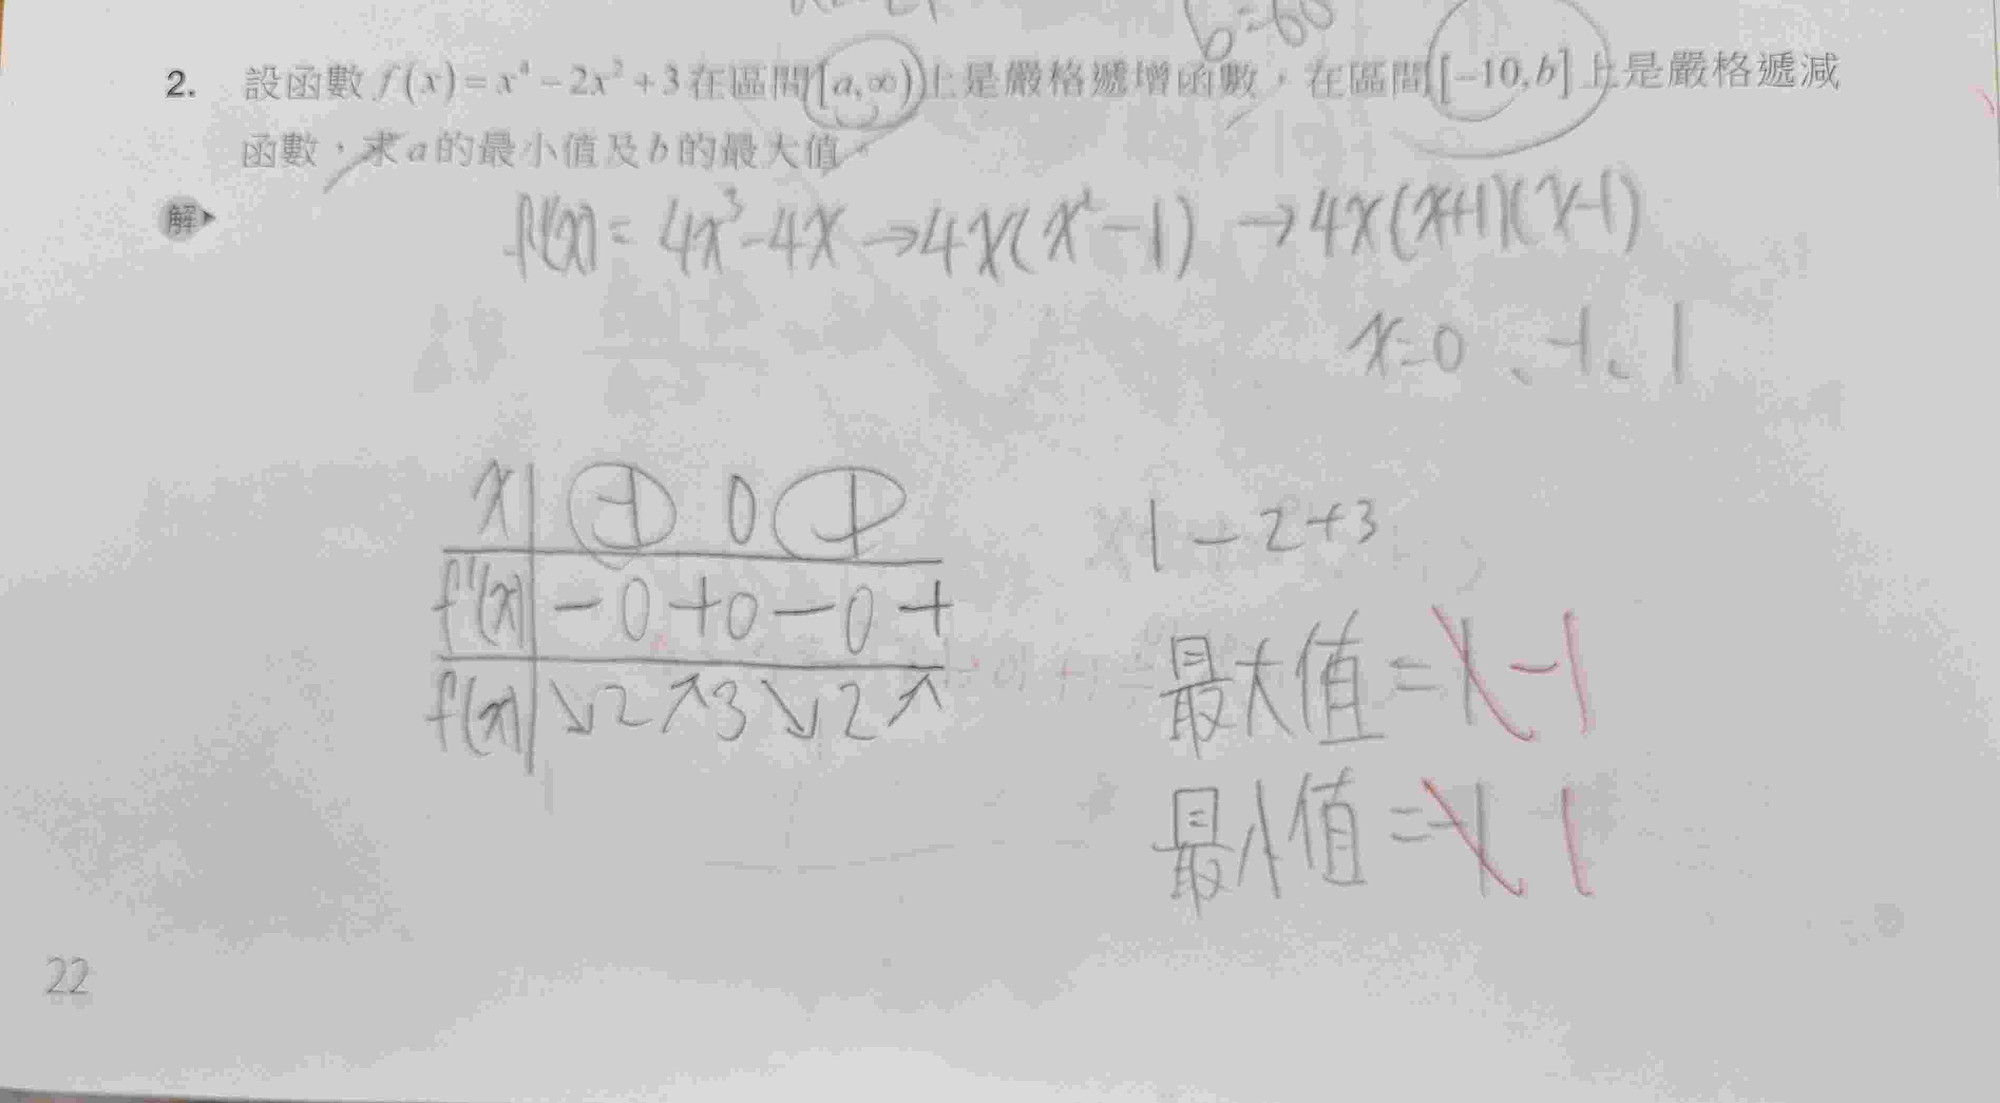 b=60
2. 設函數 f(x)=x⁴-2x²+3在區間[a,∞)上是嚴格遞增函數，在區間[-10,b]上是嚴格遞減
函數，求a的最小值及b的最大值。
解
f'(x)= 4x³-4x →4x(x²-1) →4x(x+1)(x-1)
x=0、-1、1
x -1 0 1
1-2+3
f'(x) - 0 + 0 - 0 +
最大值=1 -1
f(x) ↘ 2 ↗ 3 ↘ 2 ↗
最小值=-1 1
22